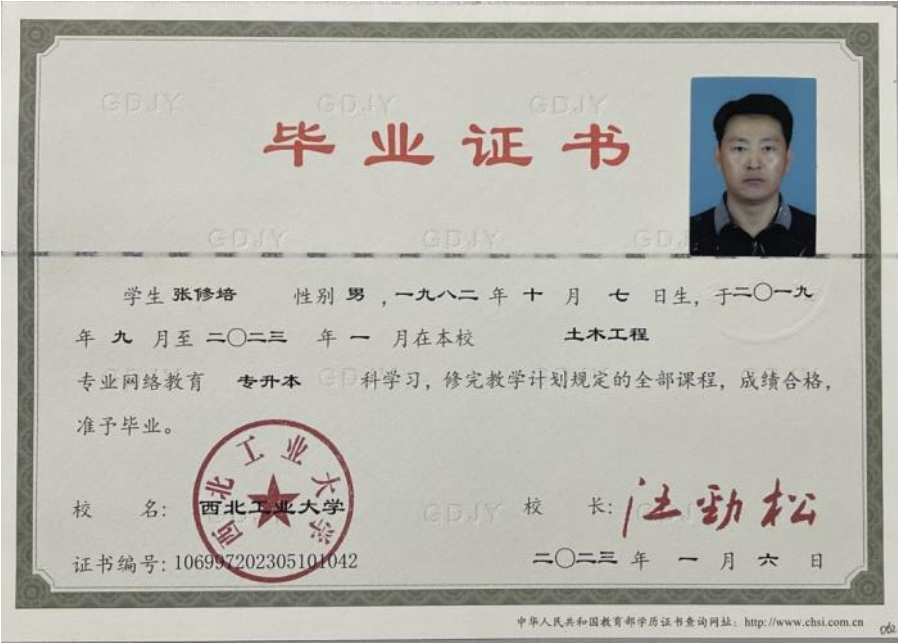 GDJY GDJY GDJY
毕业证书
GDJY GDJY GDJY
学生 张修培 性别 男 ,一九八二 年 十 月 七 日生，于二〇一九
年 九 月至 二〇二三 年 一 月在本校 土木工程
专业网络教育 专升本 科学习，修完教学计划规定的全部课程，成绩合格，
准予毕业。
西北工业大学
校 名: 西北工业大学 校 长: 汪劲松
GDJY
证书编号: 106997202305101042 二〇二三 年 一 月 六 日
中华人民共和国教育部学历证书查询网址: http://www.chsi.com.cn